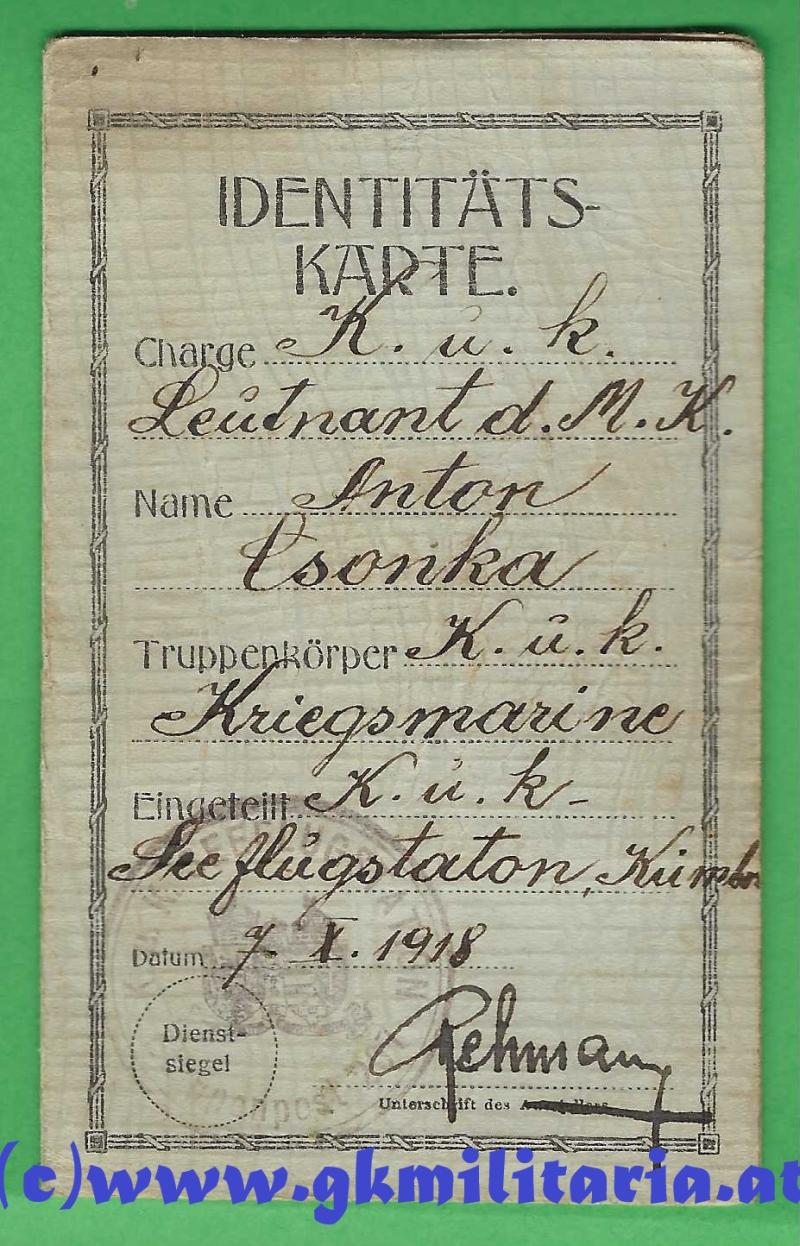 IDENTITÄTS-
KARTE.
Charge K. u. k.
Leutnant d. M. K.
Name Anton
Csonka
Truppenkörper K. u. k.
Kriegsmarine
Eingeteilt K. u. k-
Seeflugstaton, Kumbor
Datum 7. X. 1918
Dienst-
siegel
Unterschrift des
(c)www.gkmilitaria.at